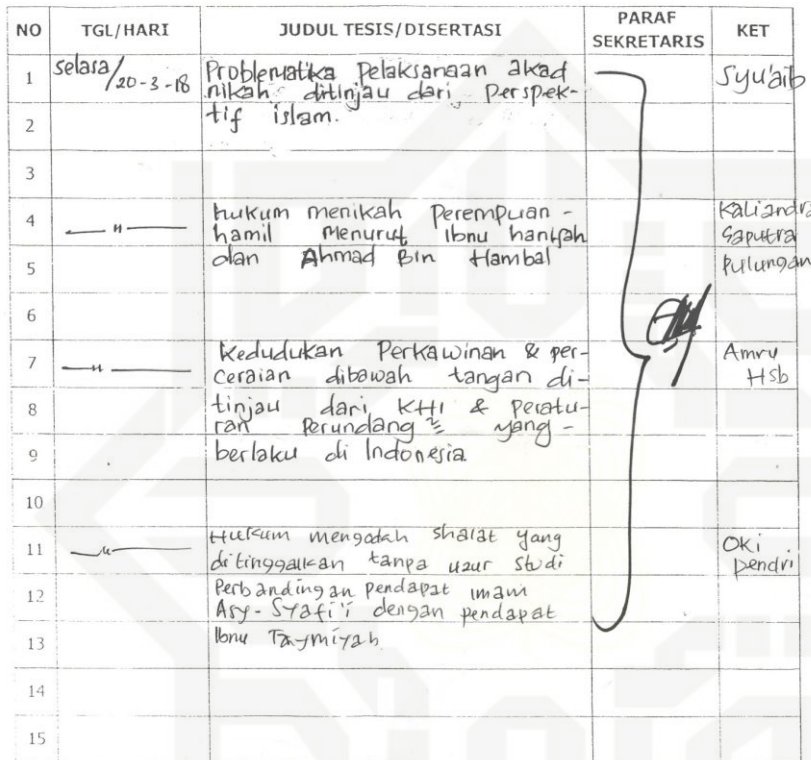 NO TGL/HARI JUDUL TESIS/DISERTASI PARAF SEKRETARIS KET
1 Selasa/20-3-18 Problematika Pelaksanaan akad Syu'aib
nikah ditinjau dari Perspek-
2 tif islam.
3
4 —— " —— hukum menikah Perempuan - Kaliandra
hamil Menurut Ibnu hanifah Saputra
5 dan Ahmad Bin Hambal Pulungan
6
7 —— " —— Kedudukan Perkawinan & per- Amru
ceraian dibawah tangan di- Hsb
8 tinjau dari KHI & peratu-
ran Perundang² yang -
9 berlaku di Indonesia
10
11 —— " —— Hukum mengqodah shalat yang Oki
ditinggalkan tanpa uzur studi Pendri
12 Perbandingan pendapat imam
Asy-Syafi'i dengan pendapat
13 Ibnu Taymiyah
14
15